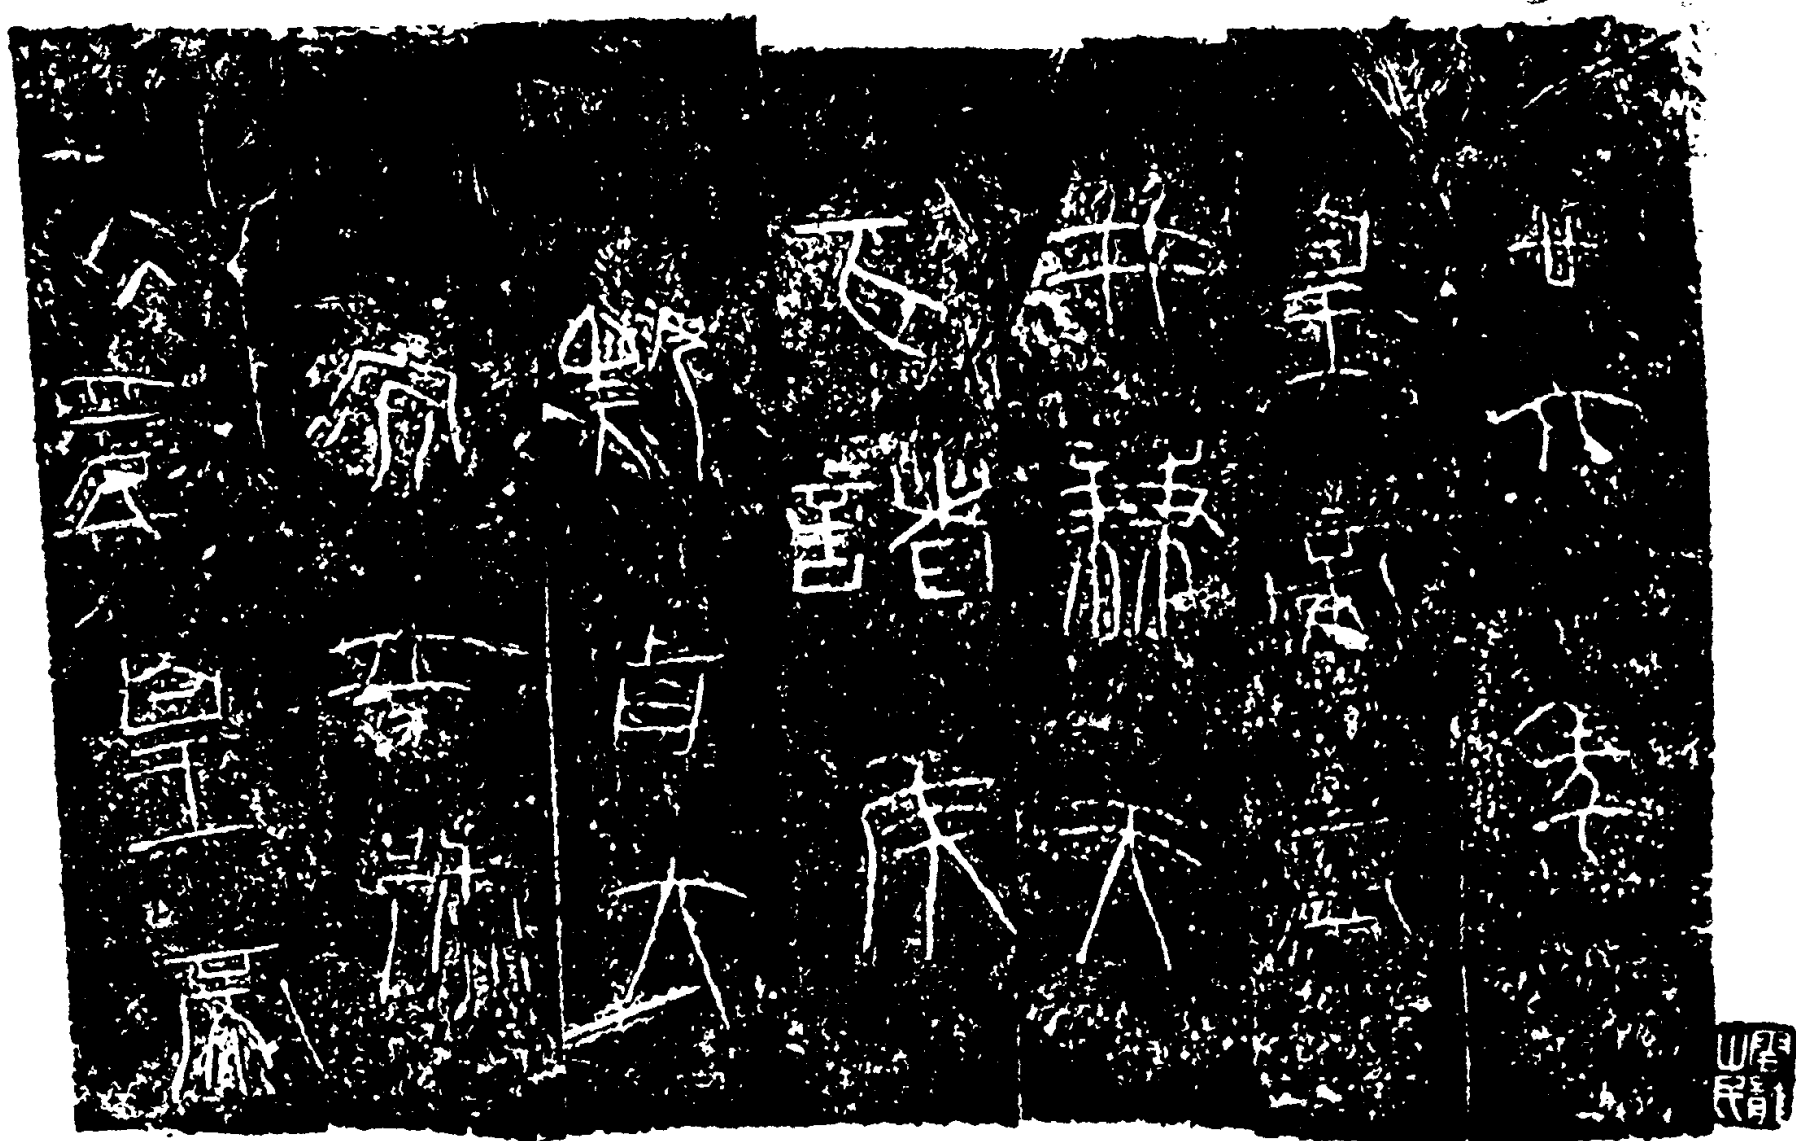 廿六年
皇帝盡
并兼天
下諸矦
黔首大
安立號
為皇帝